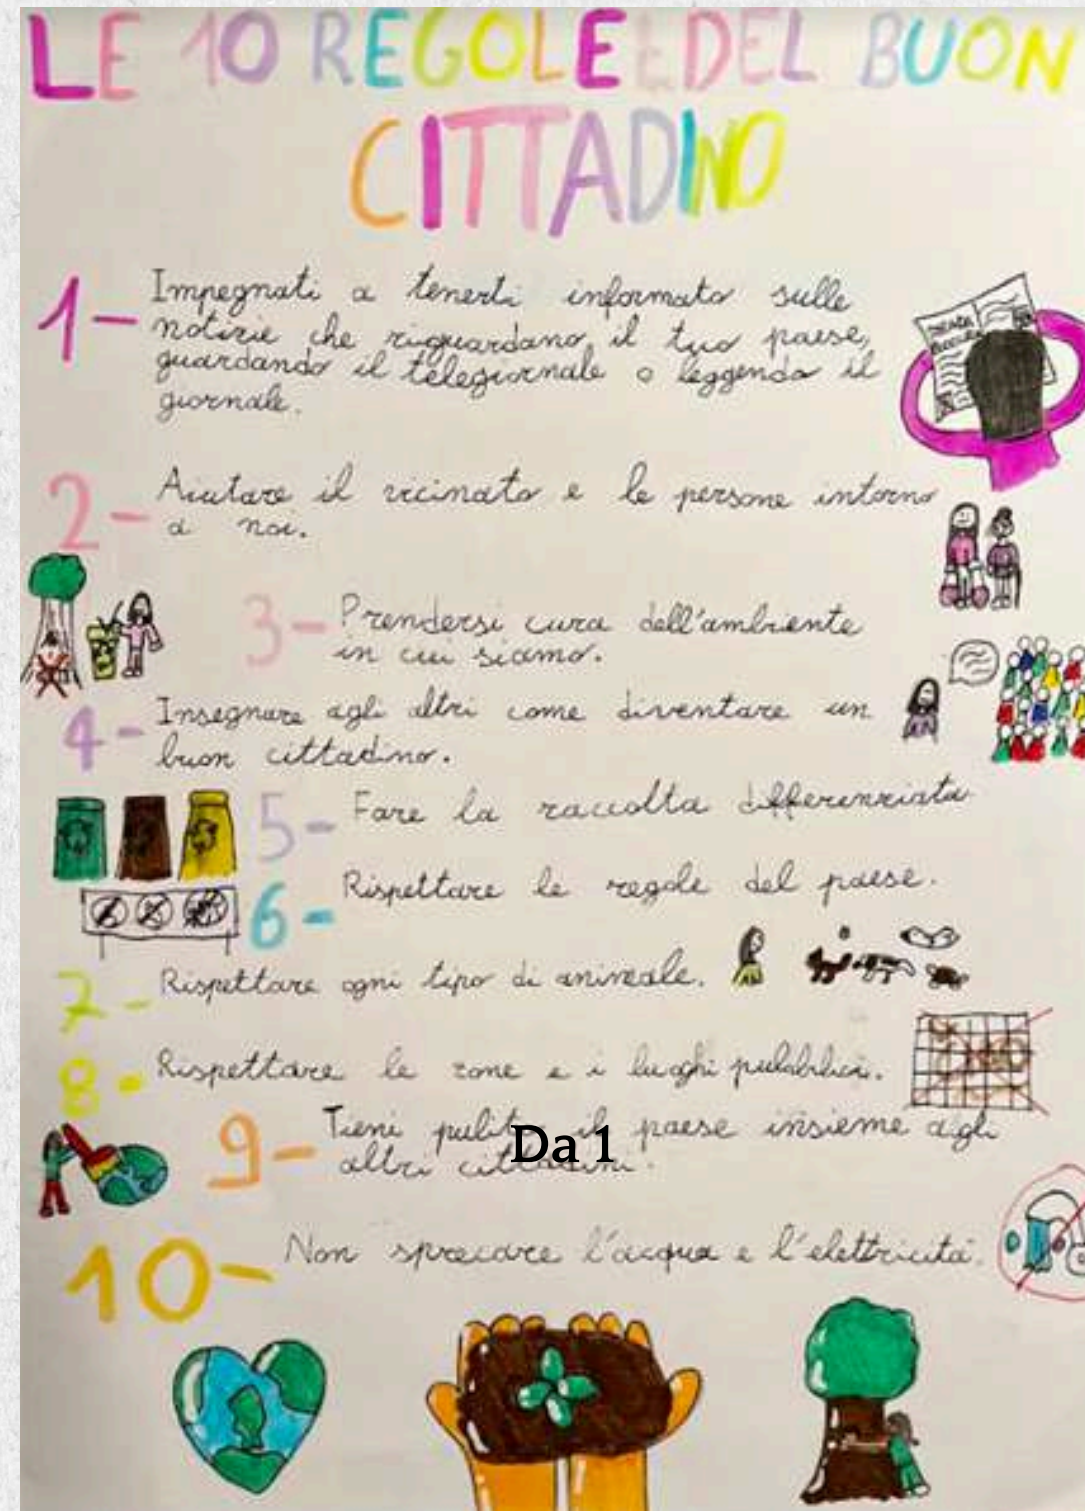 LE 10 REGOLE DEL BUON
CITTADINO
1- Impegnati a tenerti informato sulle
notizie che riguardano il tuo paese,
guardando il telegiornale o leggendo il
giornale.
2- Aiutare il vicinato e le persone intorno
a noi.
3- Prendersi cura dell'ambiente
in cui siamo.
4- Insegnare agli altri come diventare un
buon cittadino.
5- Fare la raccolta differenziata
6- Rispettare le regole del paese.
7- Rispettare ogni tipo di animale.
8- Rispettare le zone e i luoghi pubblici.
9- Tieni pulito il paese insieme agli
altri cittadini.
Da 1
10- Non sprecare l'acqua e l'elettricità.